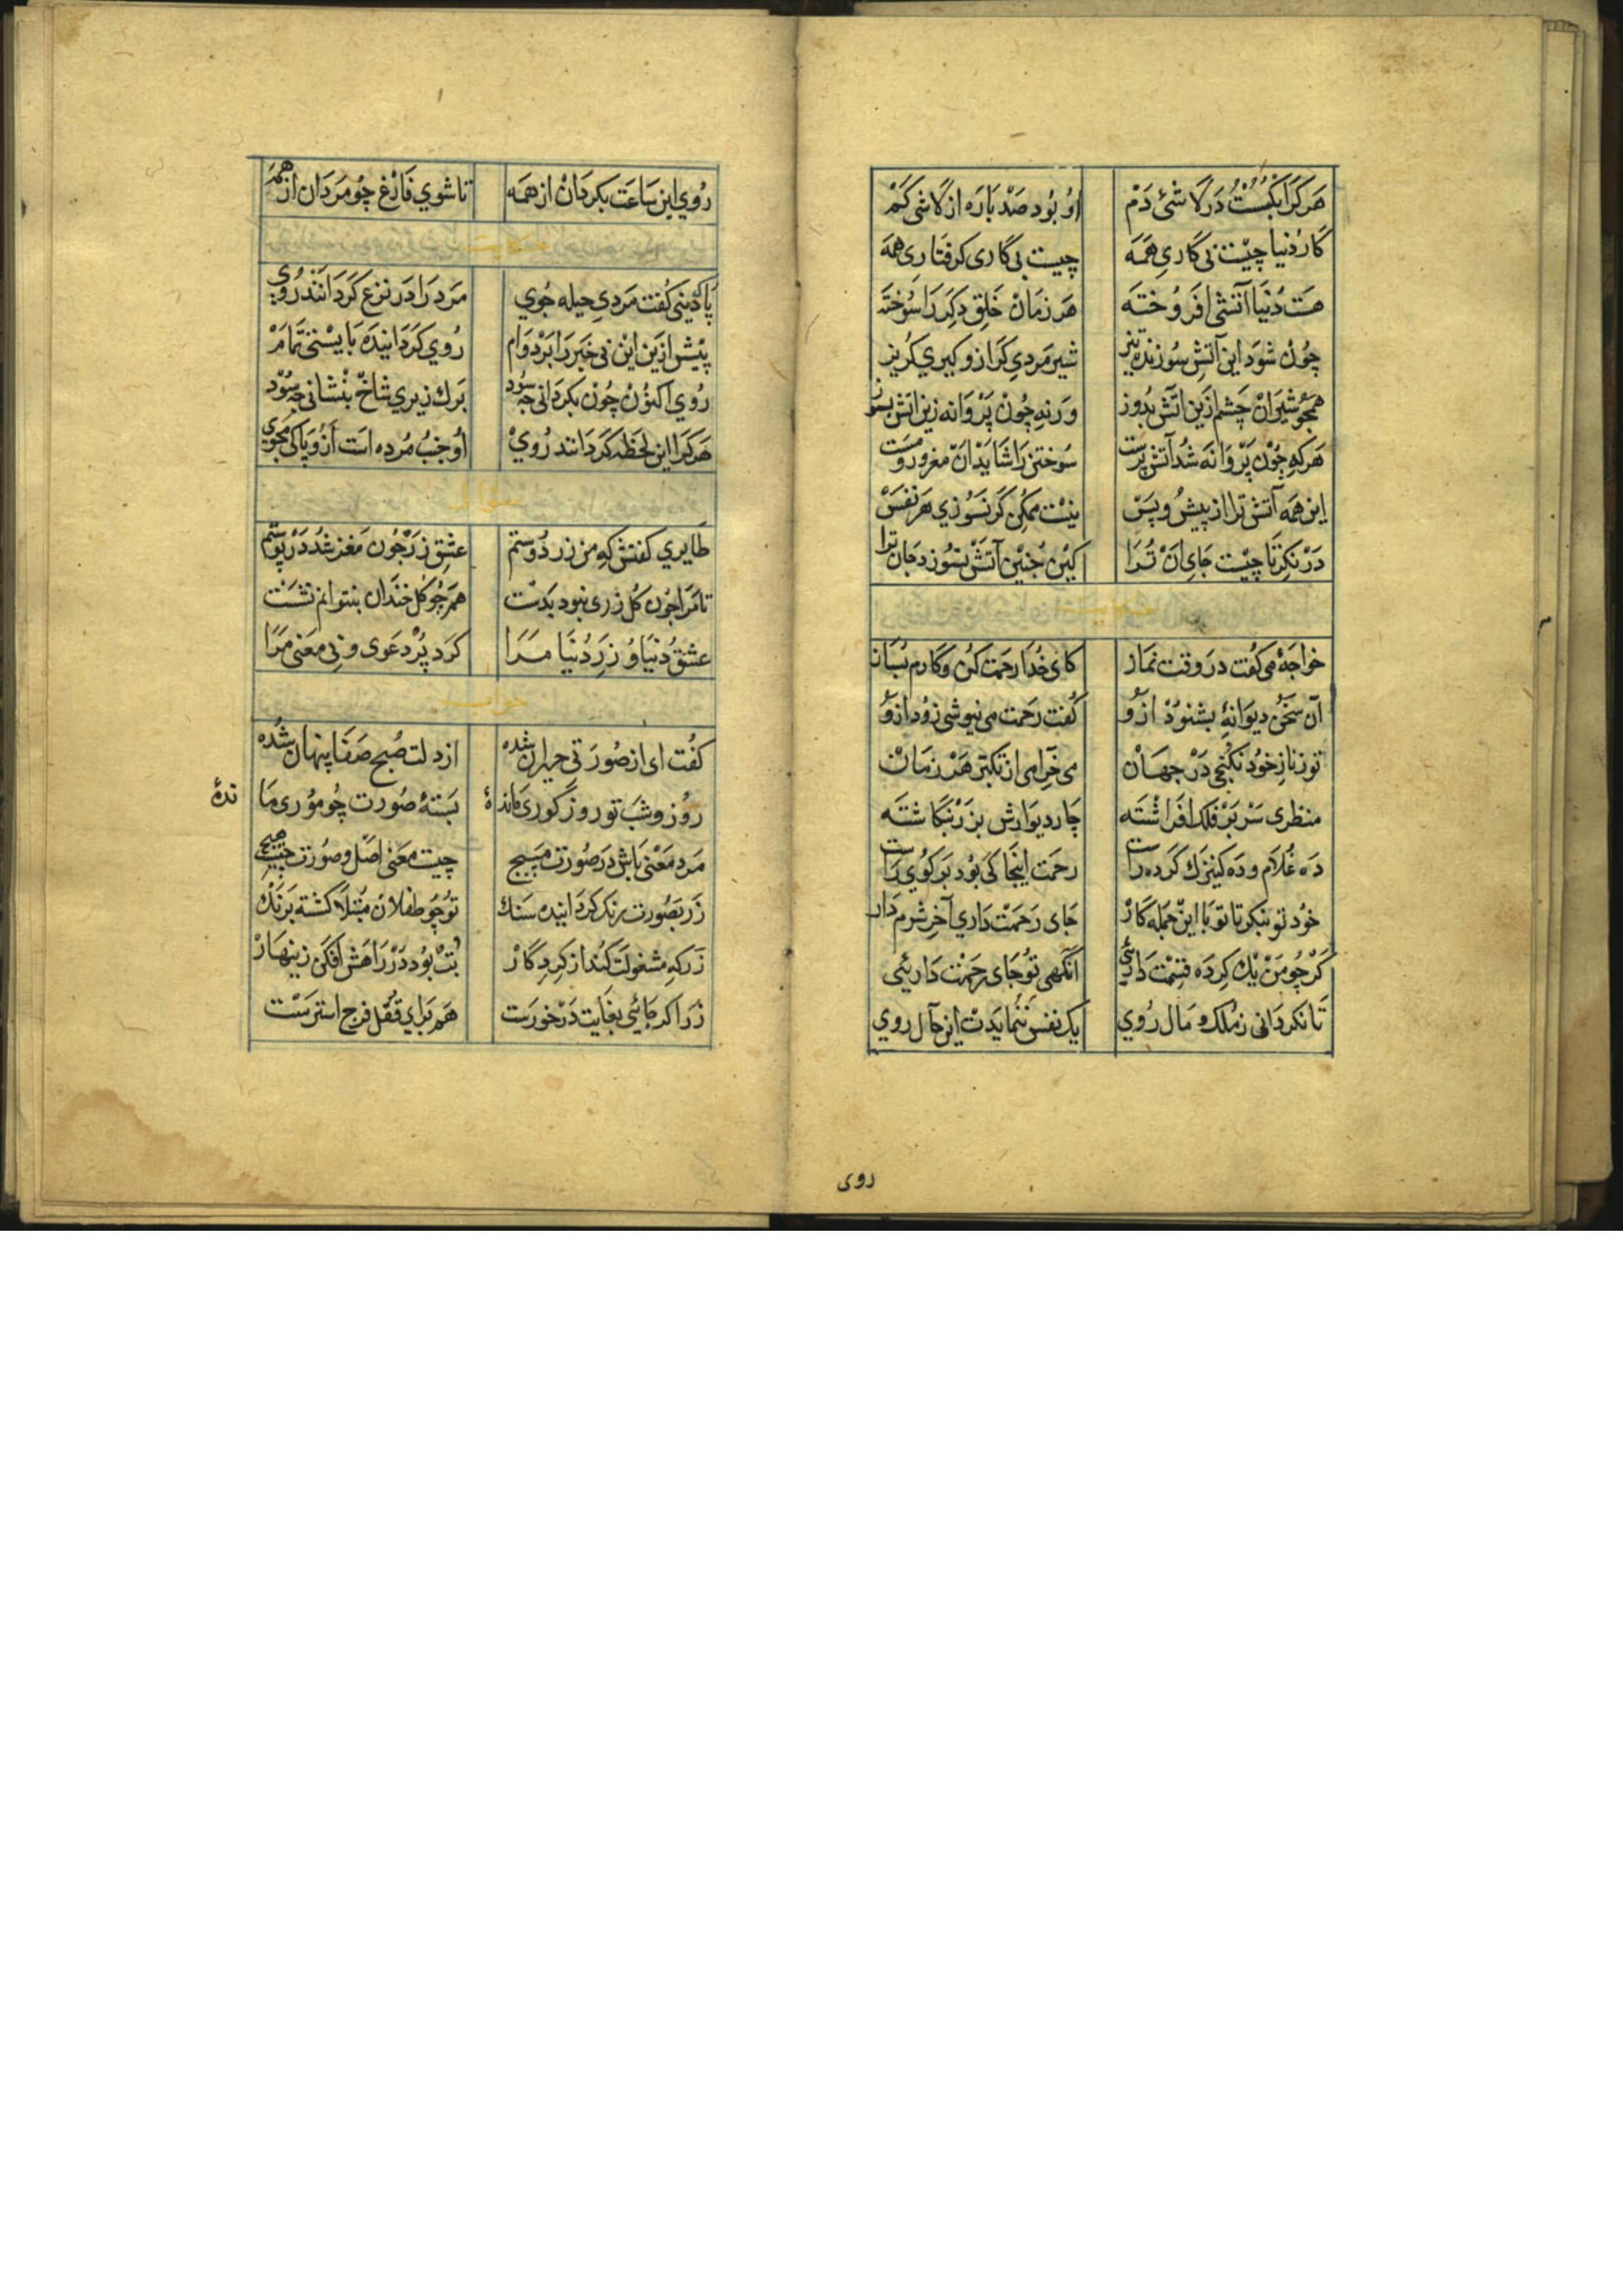 هَرکرا بکسست در لاشئ دم او بود صد باره از لاشی کم
کار دنیا چیست بی کاری همه چیست بی کاری کرفتاری همه
هست دنیا آتشی افروخته هر زمان خلق دکر را سوخته
چون شود این آتش سوزنده تیز شیر مردی کر ازو کیری کریز
همچو شیران چشم ازین آتش بدوز ورنه چون پروانه زین اتش بسوز
هرکه چون پروانه شد آتش پرست سوختن را شاید آن مغرور مست
این همه آتش ترا از پیش و پس نیست ممکن کر نسوزی هر نفس
درنکر تا چیست جای آن ترا کین چنین آتش نسوزد جان ترا
خواجهٔ می کفت در وقت نماز کای خدا رحمت کن و کارم بساز
آن سخن دیوانهٔ بشنود ازو کفت رحمت می نیوشی زود ازو
تو ز ناز خود نکنجی در جهان می خرامی از تکبر هر زمان
منظری سر بر فلک افراشته چار دیوارش بزر نکاشته
ده غلام و ده کنیزک کرده راست رحمت اینجا کی بود بر کوی راست
خود تو بنکر تا تو با این جمله کار جای رحمت داری آخر شرم دار
کر چو من یک کرده قسمت داریئی آنکهی تو جای رحمت داریئی
تا نکردانی ز ملک و مال روی یک نفس ننمایدت این حال روی
روی
روی این ساعت بکردان از همه تا شوی فارغ چو مردان از همه
پاک دینی کفت مردی حیله جوی مرد را در نزع کردانند روی
پیش ازین این بی خبر را بر دوام روی کردانیده بایستی تمام
روی اکنون چون بکردانی چه سود برک زیری شاخ بنشانی چه سود
هرکرا این لحظه کردانند روی او جنب مرده است ازو پاکی مجوی
سؤال
طایری کفتش که من زر دوستم عشق زر چون مغز شد در پوستم
تا مرا چون کل زری نبود بدست همچو کل خندان بنتوانم نشست
عشق دنیا و زر دنیا مرا کرد پر دعوی و بی معنی مرا
جواب
کفت ای از صورتی حیران شده از دلت صبح صفا پنهان شده
روز و شب تو روز کوری ماندهٔ بستهٔ صورت چو موری ما
ندهٔ
مرد معنی باش در صورت مپیچ چیست معنی اصل و صورت چیست هیچ
زر بصورت رنک کردانیده سنک تو چو طفلان مبتلا کشته برنک
زر که مشغولت کند از کردکار بت بود در راهش افکن زینهار
زر اکر جائی بغایت در خورست هم برای قفل فرج استرست